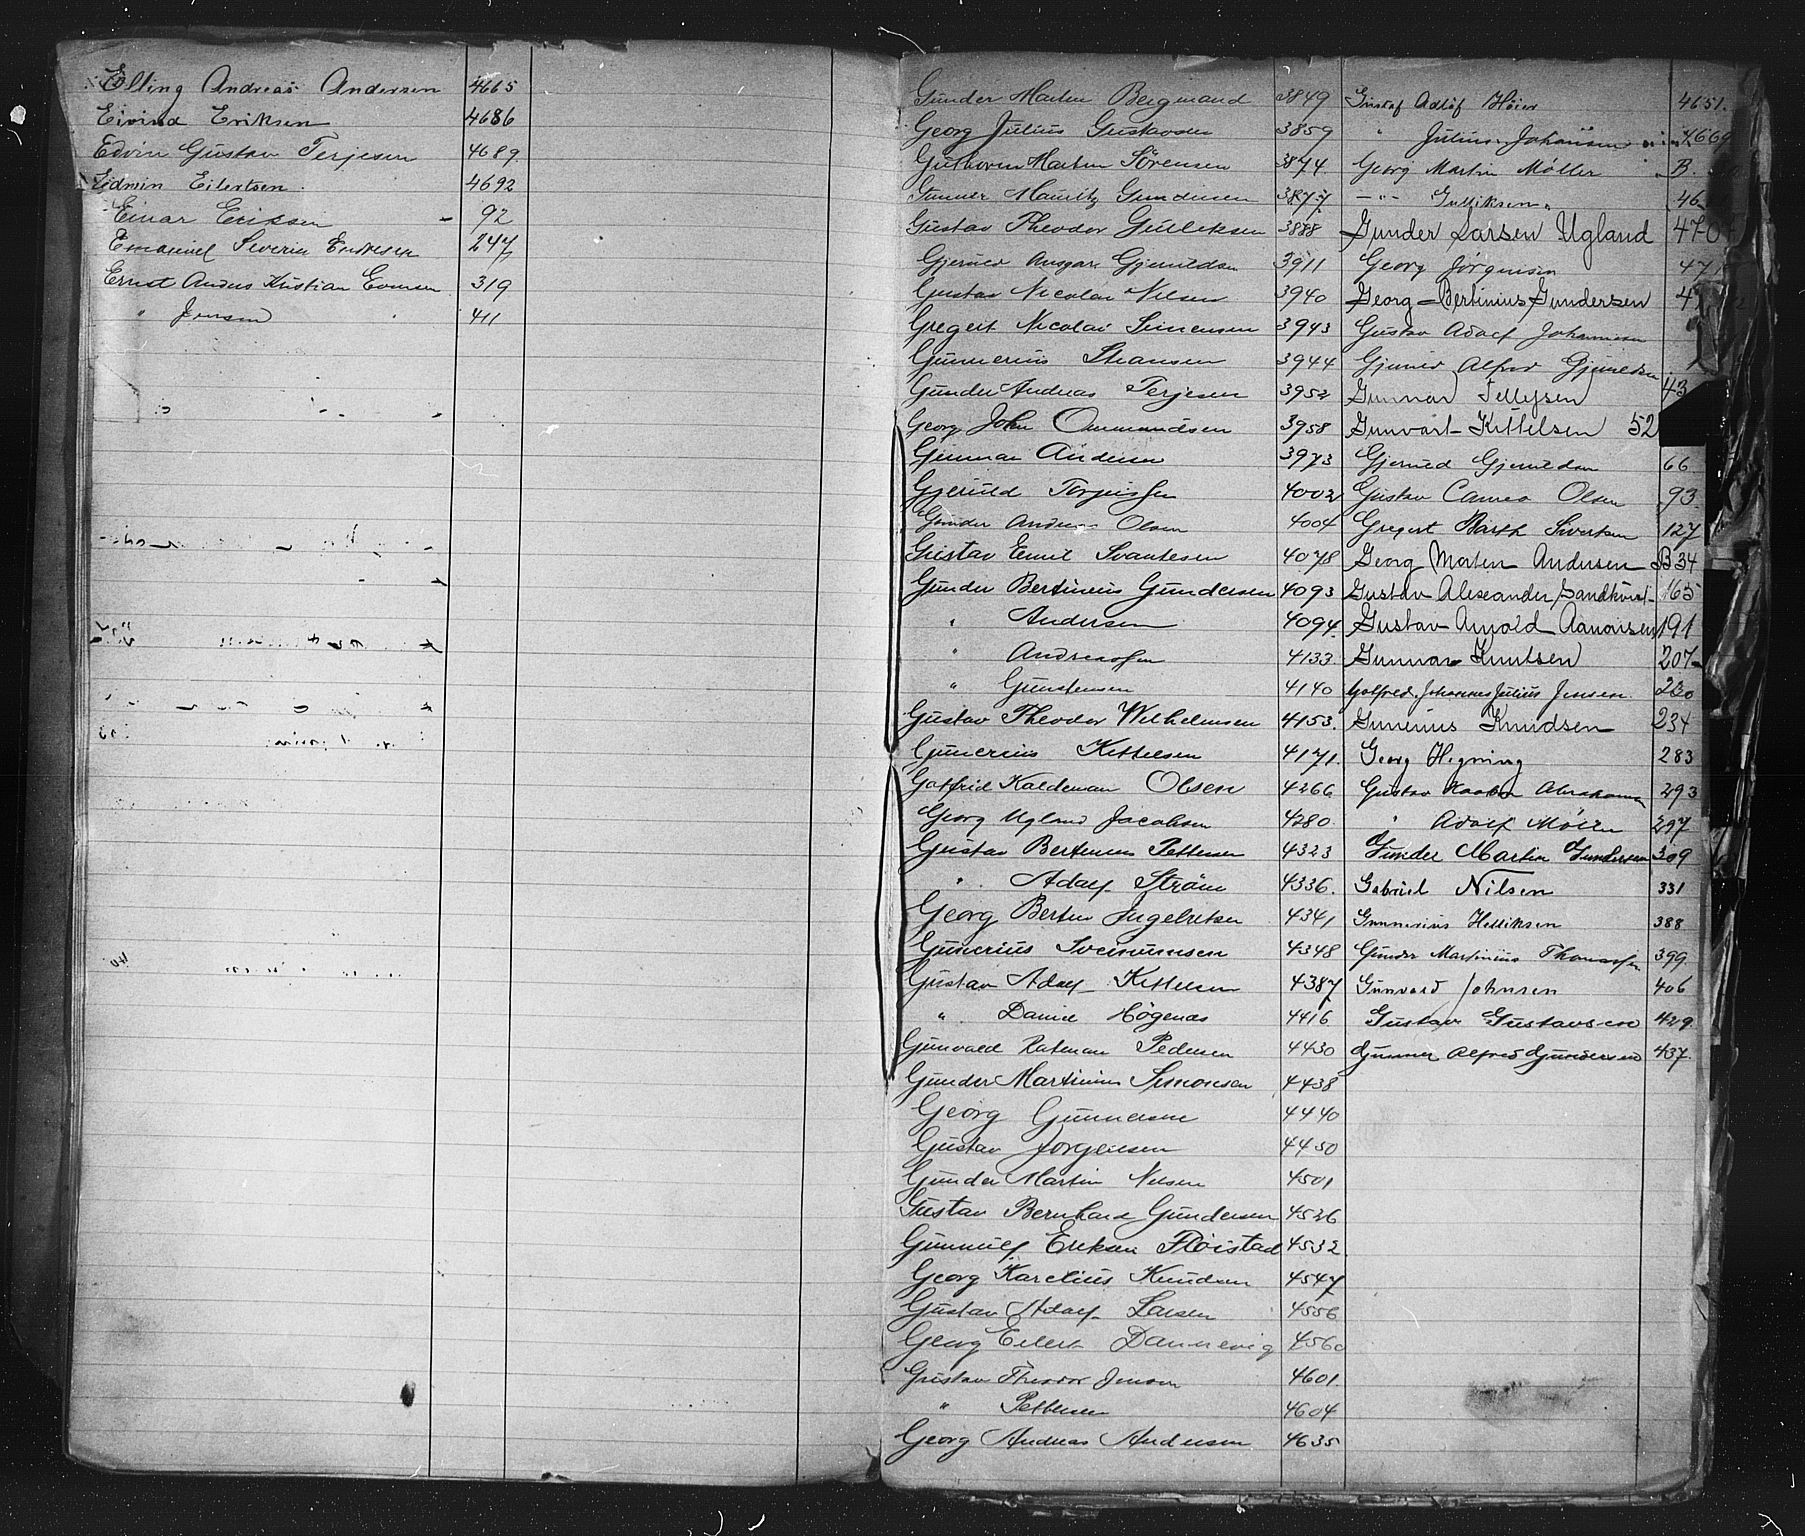 Elling Andreas Andersen 4665
Eivind Eriksen 4686
Edvin Gustav Terjesen 4689
Edmin Eilertsen 4692
Einar Eriksen 92
Emanuel Severin Eriksen 247
Ernst Anders Kristian Evensen 319
" Jensen 411
Gunder Martin Bergmand 3849
Georg Julius Gustavsen 3859
Guthorm Martin Sörensen 3874
Gunner Mauritz Gundersen 3877
Gustav Theodor Gulleksen 3888
Gjerued Ansgar Gjerueldsen 3911
Gustav Nicolai Nilsen 3940
Gregert Nicolai Simensen 3943
Gunnerius Hansen 3944
Gunder Andreas Terjesen 3952
Georg John Ommundsen 3958
Gunnar Andersen 3973
Gjeruld Torjussen 4002
Gunder Andreas Olsen 4004
Gustav Emil Svantesen 4078
Gunder Bertinius Gundersen 4093
" Andersen 4094
" Andreassen 4133
" Gunstensen 4140
Gustav Theodor Wilhelmsen 4153
Gunerius Kittelsen 4171
Gotfried Kaldeman Olsen 4266
Georg Ugland Jacobsen 4280
Gustav Bertinius Pettersen 4323
" Adolf Ström 4336
Georg Bertin Ingebretsen 4341
Gunerius Svenumsen 4348
Gustav Adolf Kittelsen 4387
" Daniel Högenæs 4416
Gunvald Ratman Pedersen 4430
Gunder Martinius Simonsen 4438
Georg Gunnersen 4440
Gustav Jörgensen 4450
Gunder Martin Nilsen 4501
Gustav Bernhard Gundersen 4526
Gunnulf Eriksen Flöistad 4532
Georg Karelius Knudsen 4547
Gustav Adolf Larsen 4556
Georg Eilert Dannevig 4560
Gustav Theodor Jensen 4601
" Pettersen 4604
Georg Andreas Andersen 4635
Gustaf Adlöf Höier 4651
" Julius Johansen 4669
Georg Martin Möller B.
—"— Gulliksen 46
Gunder Larsen Ugland 470
Georg Jørgensen 471
Georg Bertinius Gundersen 47
Gustav Adolf Johannesen
Gjerued Alfred Gjerueldsen
Gunnar Tellefsen 43
Gunvart Kittelsen 52
Gjerued Gjerueldsen 66
Gustav Olsen 93
Gregert Barth Sivertsen 127
Georg Morten Andersen B34
Gustav Alexander Sandkvist 165
Gustav Arnold Aanonsen 191
Gunnar Knutsen 207
Golfred Johannes Julius Jensen 220
Gunerius Knudsen 234
Georg Hegning 283
Gustav Haakon Abrahamsen 293
" Adolf Möller 297
Gunder Martin Gundersen 309
Gabriel Nilsen 331
Gunnerius Helliksen 388
Gunder Martinius Thomassen 399
Gunvard Johnsen 406
Gustav Gustavsen 429
Gunner Alfred Gundersen 437